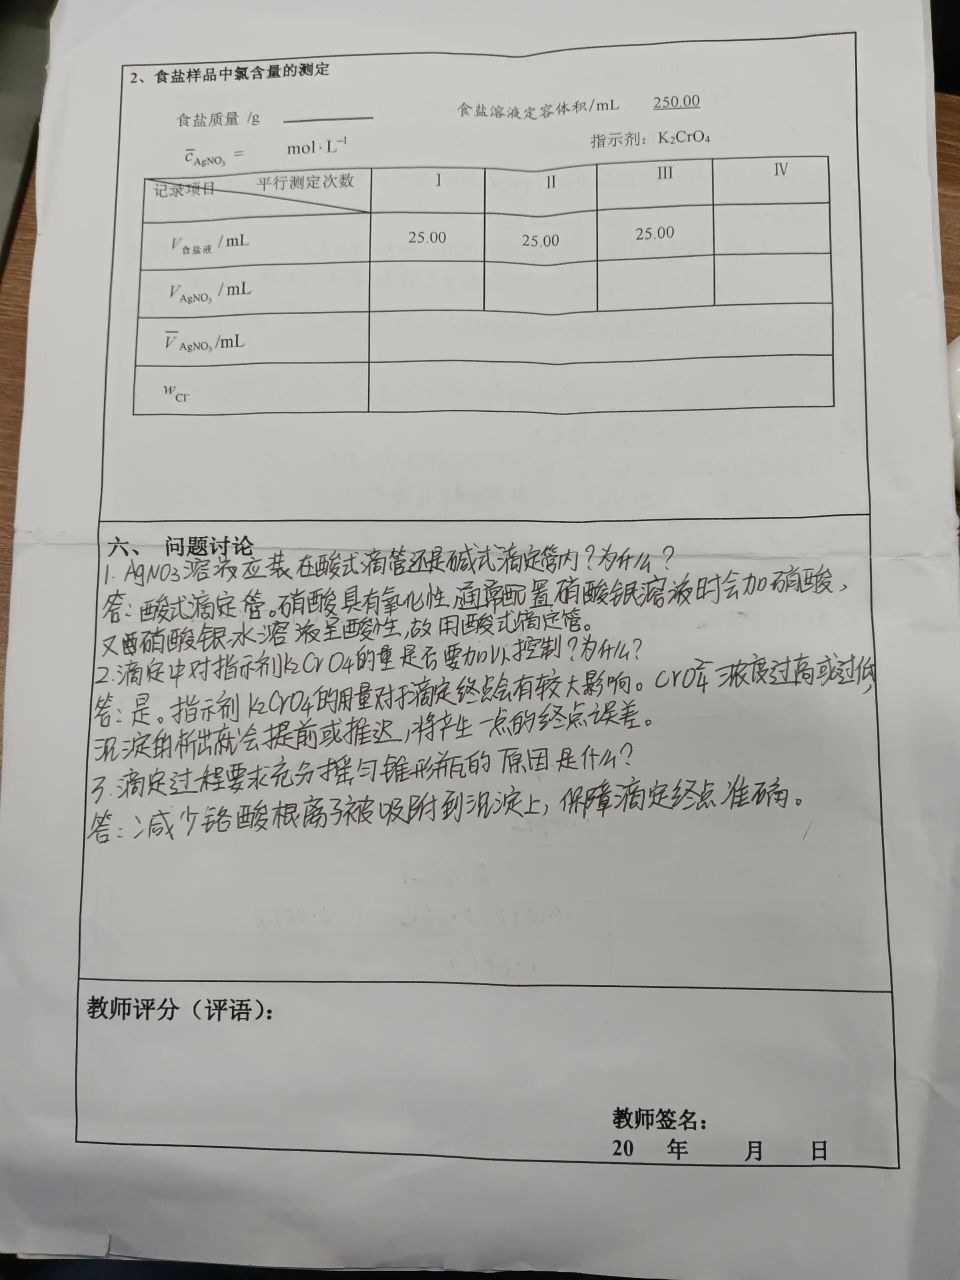 2、食盐样品中氯含量的测定
食盐质量 /g 食盐溶液定容体积/mL 250.00
c̅AgNO₃ = mol·L⁻¹ 指示剂：K₂CrO₄
记录项目 平行测定次数 I II III IV
V食盐液 /mL 25.00 25.00 25.00
VAgNO₃ /mL
V̅AgNO₃/mL
wCl⁻
六、 问题讨论
1. AgNO3溶液应装在酸式滴管还是碱式滴定管内？为什么？
答：酸式滴定管。硝酸具有氧化性，通常配置硝酸银溶液时会加硝酸，
又硝酸银水溶液呈酸性，故用酸式滴定管。
2.滴定中对指示剂K2CrO4的量是否要加以控制？为什么？
答：是。指示剂K2CrO4的用量对于滴定终点会有较大影响。CrO₄²⁻浓度过高或过低，
沉淀的析出就会提前或推迟，将产生一点的终点误差。
3.滴定过程要求充分摇匀锥形瓶的原因是什么？
答：减少铬酸根离子被吸附到沉淀上，保障滴定终点准确。
教师评分（评语）：
教师签名：
20 年 月 日